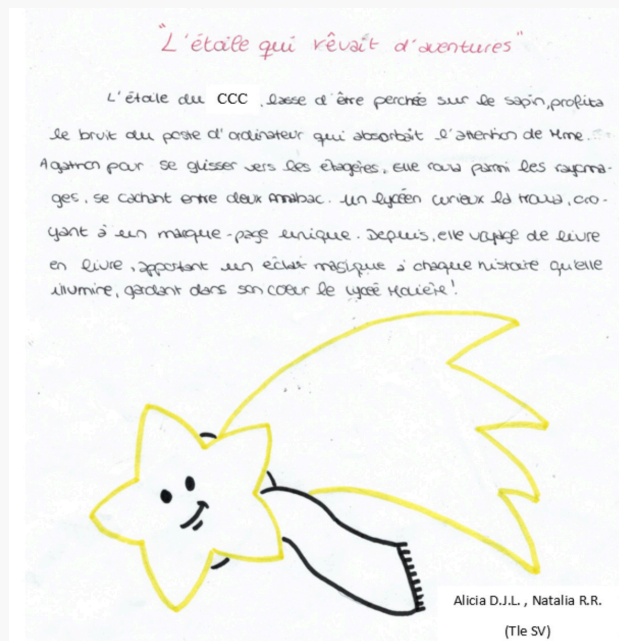 "L'étoile qui rêvait d'aventures"
L'étoile du CCC, lasse d'être perchée sur le sapin, profita
le bruit du poste d'ordinateur qui absorbait l'attention de Mme.
Agatron pour se glisser vers les étagères. Elle roula parmi les rayonna-
ges, se cachant entre deux Annabac. Un lycéen curieux la trouva, cro-
yant à un marque-page unique. Depuis, elle voyage de livre
en livre, apportant un éclat magique à chaque histoire qu'elle
illumine, gardant dans son coeur le lycée Molière!
Alicia D.J.L. , Natalia R.R.
(Tle SV)